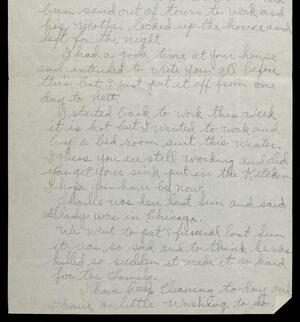 been send out of town to work and
his Mother locked up the house and
left for the night.
I had a good time at your house
and intended to write you all before
this but I just put it off from one
day to next.
I started back to work this week
it is hot but I wanted to work and
buy a bed room suit this Winter.
I guess you are still working and did
you get your sink put in the Kitchen
I hope you have by now.
Charlls was here last Sun and said
Gladys was in Chicago.
We Went to pat's funeral last Sun
it was so sad and to think he was
killed so sudden it made it so hard
for the Family.
I have Cleaning to do and
I have a little Washing to do